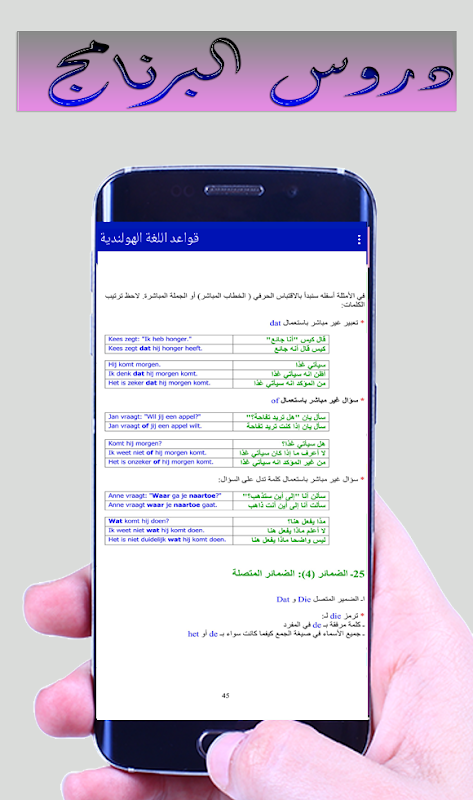 دروس البرنامج
قواعد اللغة الهولندية
في الأمثلة أسفله سنبدأ بالاقتباس الحرفي ( الخطاب المباشر) أو الجملة المباشرة. لاحظ ترتيب
الكلمات:
* تعبير غير مباشر باستعمال dat
Kees zegt: "Ik heb honger." قال كيس "أنا جائع"
Kees zegt dat hij honger heeft. كيس قال أنه جائع
Hij komt morgen. سيأتي غذا
Ik denk dat hij morgen komt. أظن انه سيأتي غذا
Het is zeker dat hij morgen komt. من المؤكد انه سيأتي غذا
* سؤال غير مباشر باستعمال of
Jan vraagt: "Wil jij een appel?" سأل يان "هل تريد تفاحة؟"
Jan vraagt of jij een appel wilt. سأل يان إذا كنت تريد تفاحة
Komt hij morgen? هل سيأتي غذا؟
Ik weet niet of hij morgen komt. لا أعرف ما إذا كان سيأتي غذا
Het is onzeker of hij morgen komt. من غير المؤكد انه سيأتي غذا
* سؤال غير مباشر باستعمال كلمة تدل على السؤال:
Anne vraagt: "Waar ga je naartoe?" سألت أنا "إلى أين ستذهب؟"
Anne vraagt waar je naartoe gaat. سألت أنا إلى أين أنت ذاهب
Wat komt hij doen? مذا يفعل هنا؟
Ik weet niet wat hij komt doen. لا أعلم ماذا يفعل هنا
Het is niet duidelijk wat hij komt doen. ليس واضحا ماذا يفعل هنا
25- الضمائر (4): الضمائر المتصلة
ا- الضمير المتصل Die و Dat
* ترمز die لـ:
- كلمة مرفقة بـ de في المفرد
- جميع الأسماء في صيغة الجمع كيفما كانت سواء بـ de أو het
45